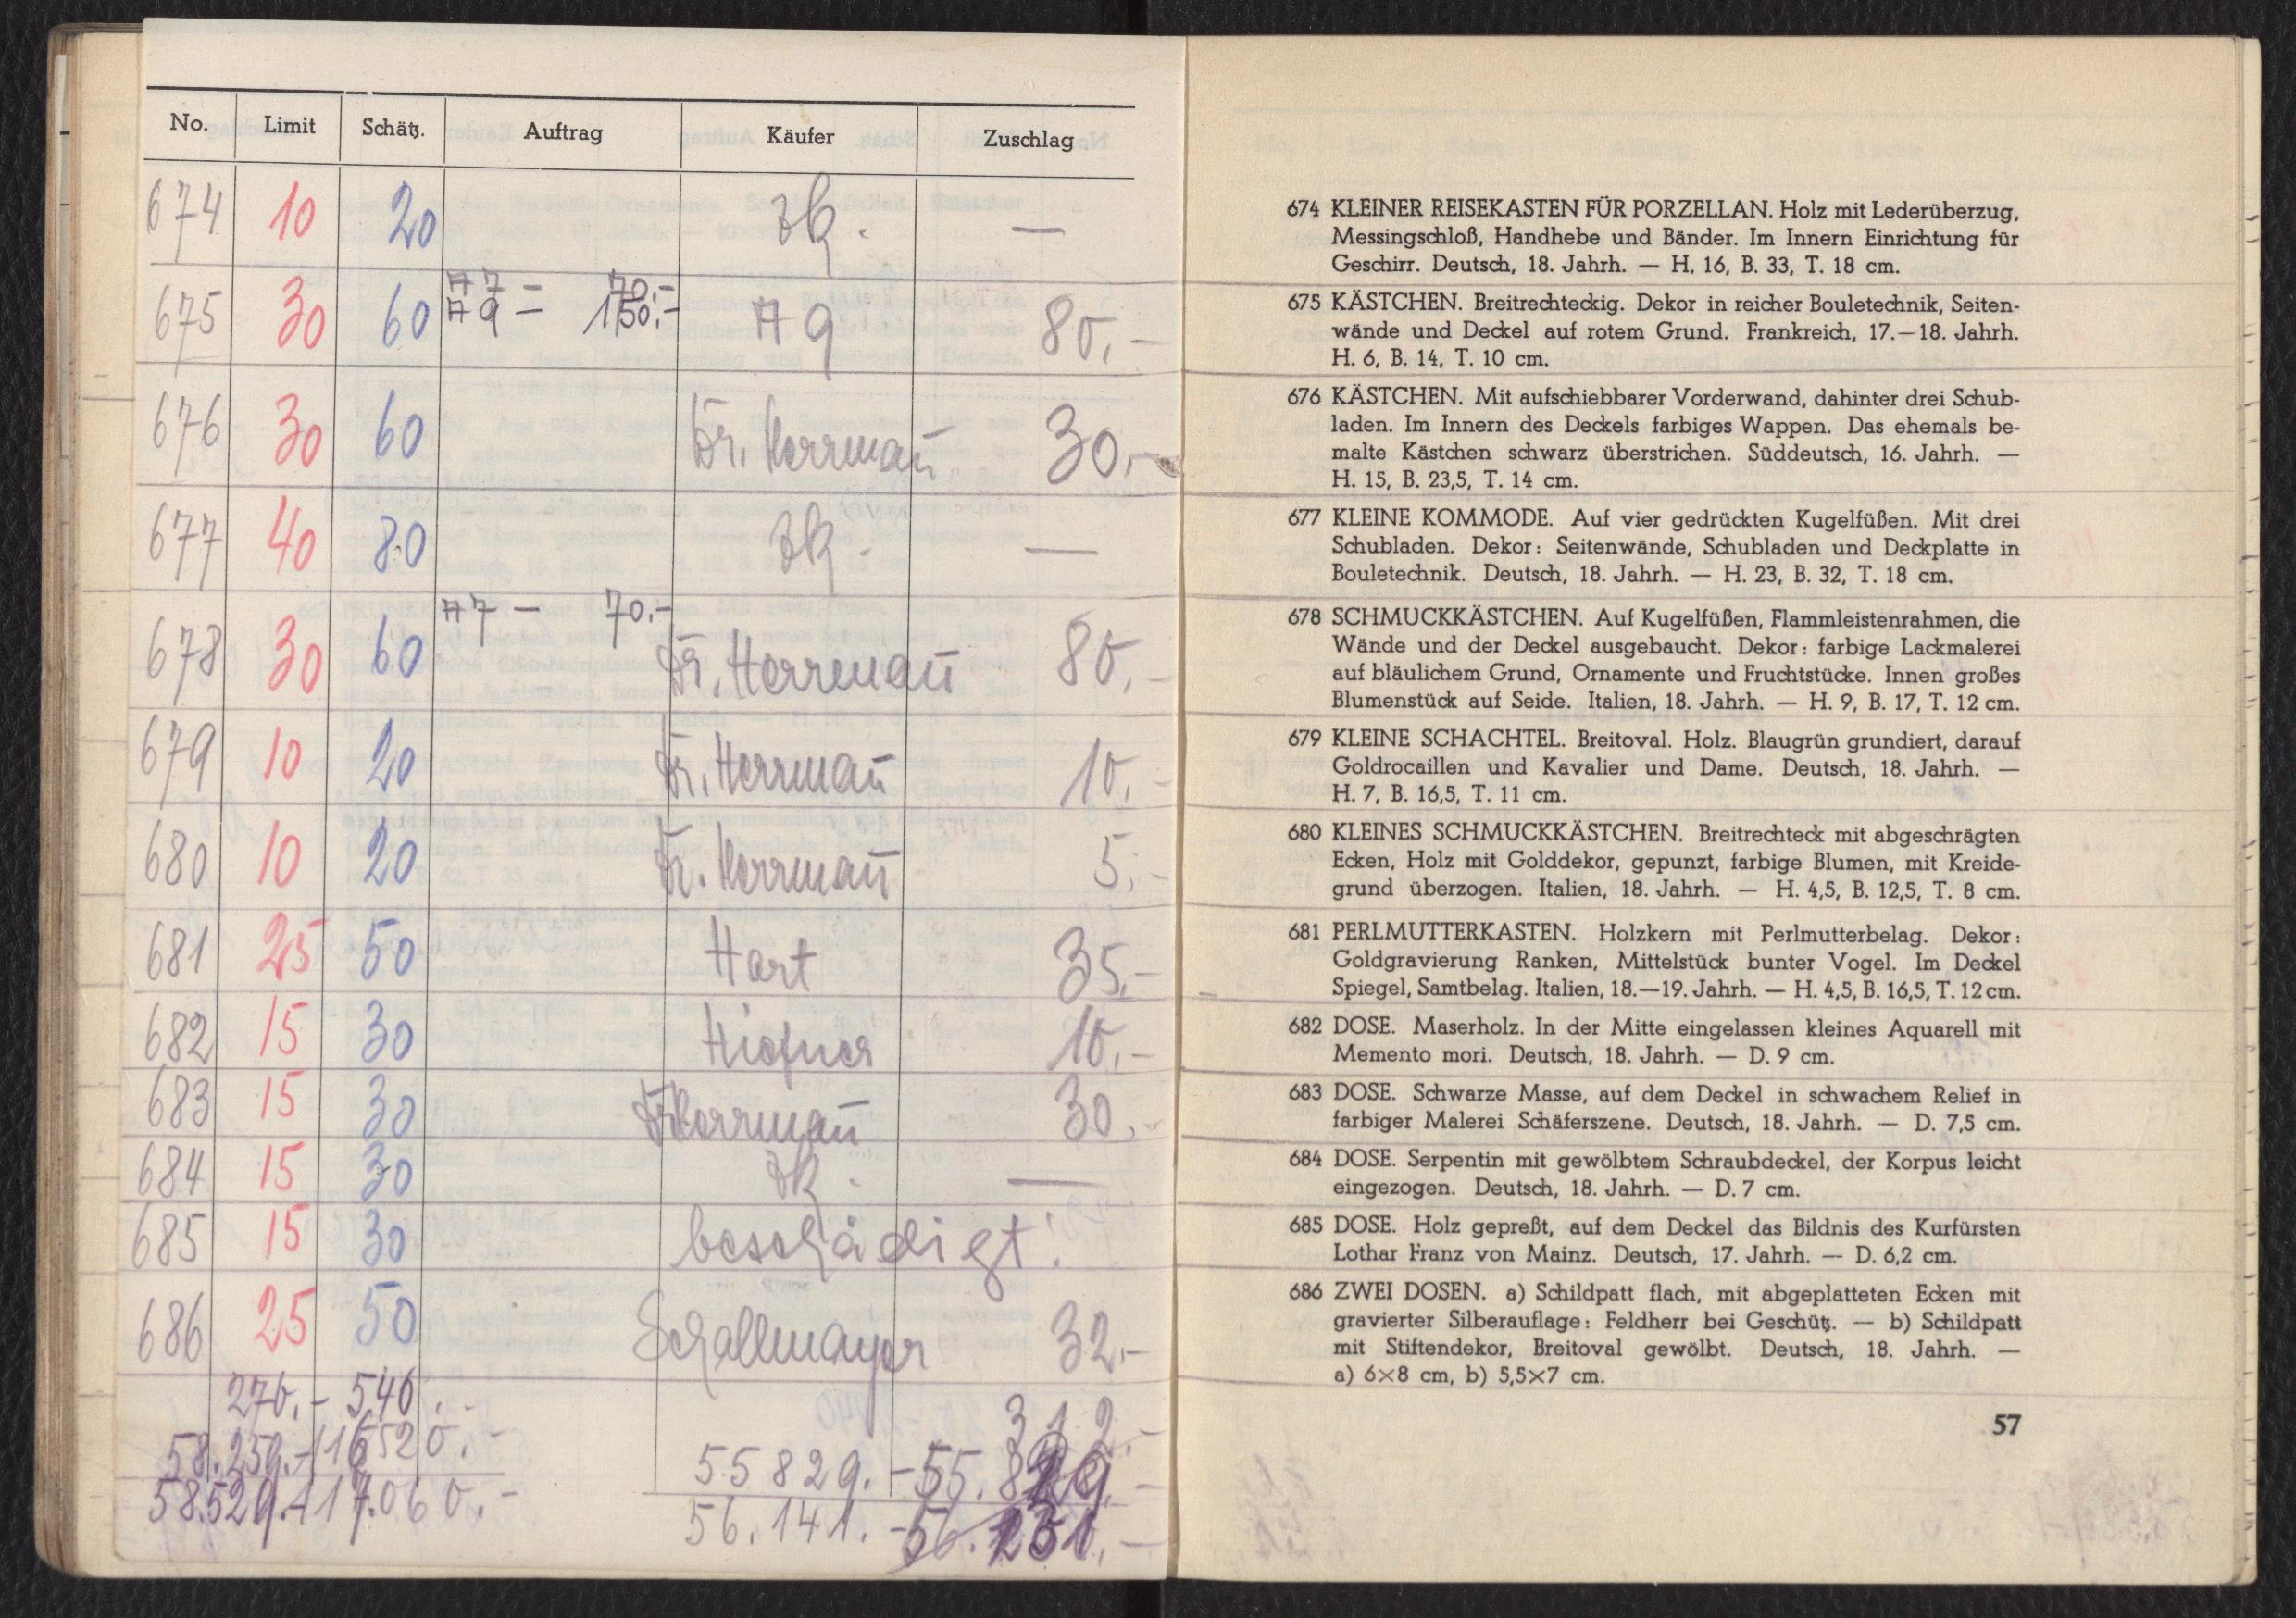 No. Limit Schätz. Auftrag Käufer Zuschlag
674 10 20 zk. —
77 — 70.-
675 30 60 79 — 150.- 79 80.-
676 30 60 Dr. Herrman̄ 30.-
677 40 80 zk. —
77 — 70.-
678 30 60 Dr. Herrman̄ 80.-
679 10 20 Dr. Herrman̄ 10.-
680 10 20 Dr. Herrman̄ 5.-
681 25 50 Hart 35.-
682 15 30 10.-
683 15 30 Dr Herrman̄ 30.-
684 15 30 zk. —
685 15 30 beschädigt!
686 25 50 Schallmayer 32.-
270.- 540.- 312.-
58.259.- 116520.- 55829.- 55.829.-
58.529.- 117.060.- 56.141.-
674 KLEINER REISEKASTEN FÜR PORZELLAN. Holz mit Lederüberzug,
Messingschloß, Handhebe und Bänder. Im Innern Einrichtung für
Geschirr. Deutsch, 18. Jahrh. — H. 16, B. 33, T. 18 cm.
675 KÄSTCHEN. Breitrechteckig. Dekor in reicher Bouletechnik, Seiten-
wände und Deckel auf rotem Grund. Frankreich, 17.—18. Jahrh.
H. 6, B. 14, T. 10 cm.
676 KÄSTCHEN. Mit aufschiebbarer Vorderwand, dahinter drei Schub-
laden. Im Innern des Deckels farbiges Wappen. Das ehemals be-
malte Kästchen schwarz überstrichen. Süddeutsch, 16. Jahrh. —
H. 15, B. 23,5, T. 14 cm.
677 KLEINE KOMMODE. Auf vier gedrückten Kugelfüßen. Mit drei
Schubladen. Dekor: Seitenwände, Schubladen und Deckplatte in
Bouletechnik. Deutsch, 18. Jahrh. — H. 23, B. 32, T. 18 cm.
678 SCHMUCKKÄSTCHEN. Auf Kugelfüßen, Flammleistenrahmen, die
Wände und der Deckel ausgebaucht. Dekor: farbige Lackmalerei
auf bläulichem Grund, Ornamente und Fruchtstücke. Innen großes
Blumenstück auf Seide. Italien, 18. Jahrh. — H. 9, B. 17, T. 12 cm.
679 KLEINE SCHACHTEL. Breitoval. Holz. Blaugrün grundiert, darauf
Goldrocaillen und Kavalier und Dame. Deutsch, 18. Jahrh. —
H. 7, B. 16,5, T. 11 cm.
680 KLEINES SCHMUCKKÄSTCHEN. Breitrechteck mit abgeschrägten
Ecken, Holz mit Golddekor, gepunzt, farbige Blumen, mit Kreide-
grund überzogen. Italien, 18. Jahrh. — H. 4,5, B. 12,5, T. 8 cm.
681 PERLMUTTERKASTEN. Holzkern mit Perlmutterbelag. Dekor:
Goldgravierung Ranken, Mittelstück bunter Vogel. Im Deckel
Spiegel, Samtbelag. Italien, 18.—19. Jahrh. — H. 4,5, B. 16,5, T. 12 cm.
682 DOSE. Maserholz. In der Mitte eingelassen kleines Aquarell mit
Memento mori. Deutsch, 18. Jahrh. — D. 9 cm.
683 DOSE. Schwarze Masse, auf dem Deckel in schwachem Relief in
farbiger Malerei Schäferszene. Deutsch, 18. Jahrh. — D. 7,5 cm.
684 DOSE. Serpentin mit gewölbtem Schraubdeckel, der Korpus leicht
eingezogen. Deutsch, 18. Jahrh. — D. 7 cm.
685 DOSE. Holz gepreßt, auf dem Deckel das Bildnis des Kurfürsten
Lothar Franz von Mainz. Deutsch, 17. Jahrh. — D. 6,2 cm.
686 ZWEI DOSEN. a) Schildpatt flach, mit abgeplatteten Ecken mit
gravierter Silberauflage: Feldherr bei Geschütz. — b) Schildpatt
mit Stiftendekor, Breitoval gewölbt. Deutsch, 18. Jahrh. —
a) 6×8 cm, b) 5,5×7 cm.
57